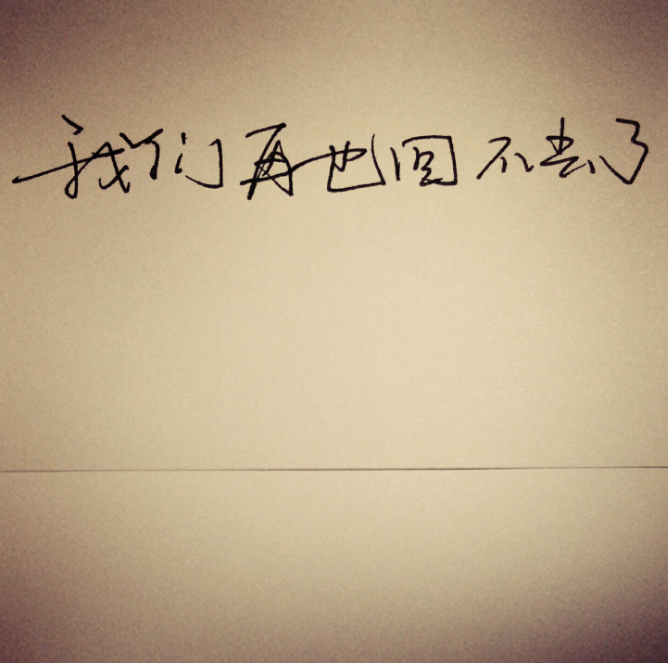 我们再也回不去了